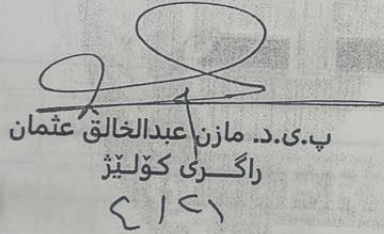 پ.ی.د. مازن عبدالخالق عثمان
راگری کۆلێژ
٤ / ٢١